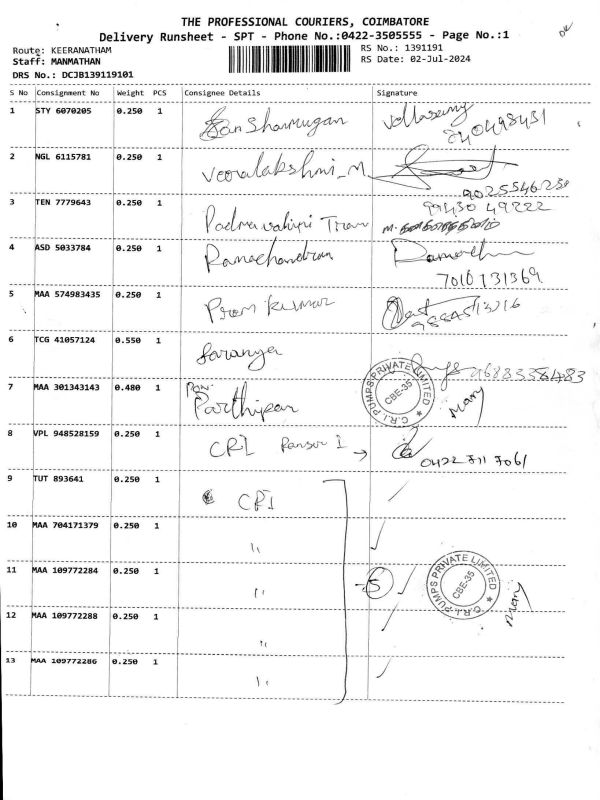 THE PROFESSIONAL COURIERS, COIMBATORE
Delivery Runsheet - SPT - Phone No.:0422-3505555 - Page No.:1
Route: KEERANATHAM
RS No.: 1391191
Staff: MANMATHAN
RS Date: 02-Jul-2024
DRS No.: DCJB139119101
S No Consignment No Weight PCS Consignee Details Signature
1 STY 6070205 0.250 1 Shanmugan
2 NGL 6115781 0.250 1 Veeralakshmi_M
9025546236
3 TEN 7779643 0.250 1 99430 49222
4 ASD 5033784 0.250 1 Ramachandran
7010131369
5 MAA 574983435 0.250 1 Prem Kumar
6 TCG 41057124 0.550 1 Saranya
7 MAA 301343143 0.480 1 Parthipan
C.R.I. PUMPS PRIVATE LIMITED
CBE-35
Mary
8 VPL 948528159 0.250 1 CRI
0422 711 7061
9 TUT 893641 0.250 1 CRI
10 MAA 704171379 0.250 1 "
11 MAA 109772284 0.250 1 " 5
C.R.I. PUMPS PRIVATE LIMITED
CBE-35
Mary
12 MAA 109772288 0.250 1 "
13 MAA 109772286 0.250 1 "